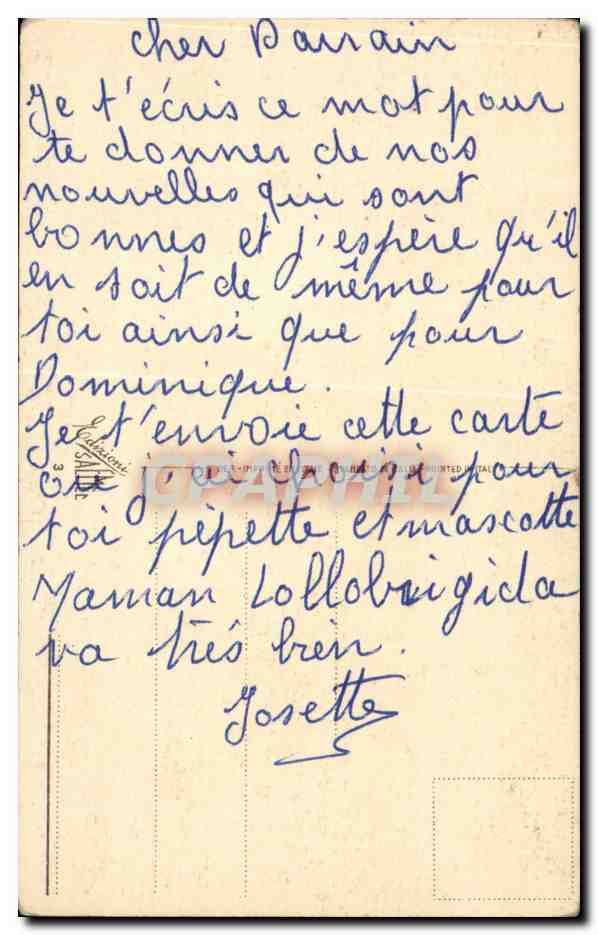 cher Parrain
Je t'écris ce mot pour
te donner de nos
nouvelles qui sont
bonnes et j'espère qu'il
en soit de même pour
toi ainsi que pour
Dominique.
Je t'envoie cette carte
ou j'ai choizi pour
toi pèpette et mascotte
Maman Lollobrigida
va très bien.
Josette
Edizioni
CARTAPHIL
PRINTED IN ITALY